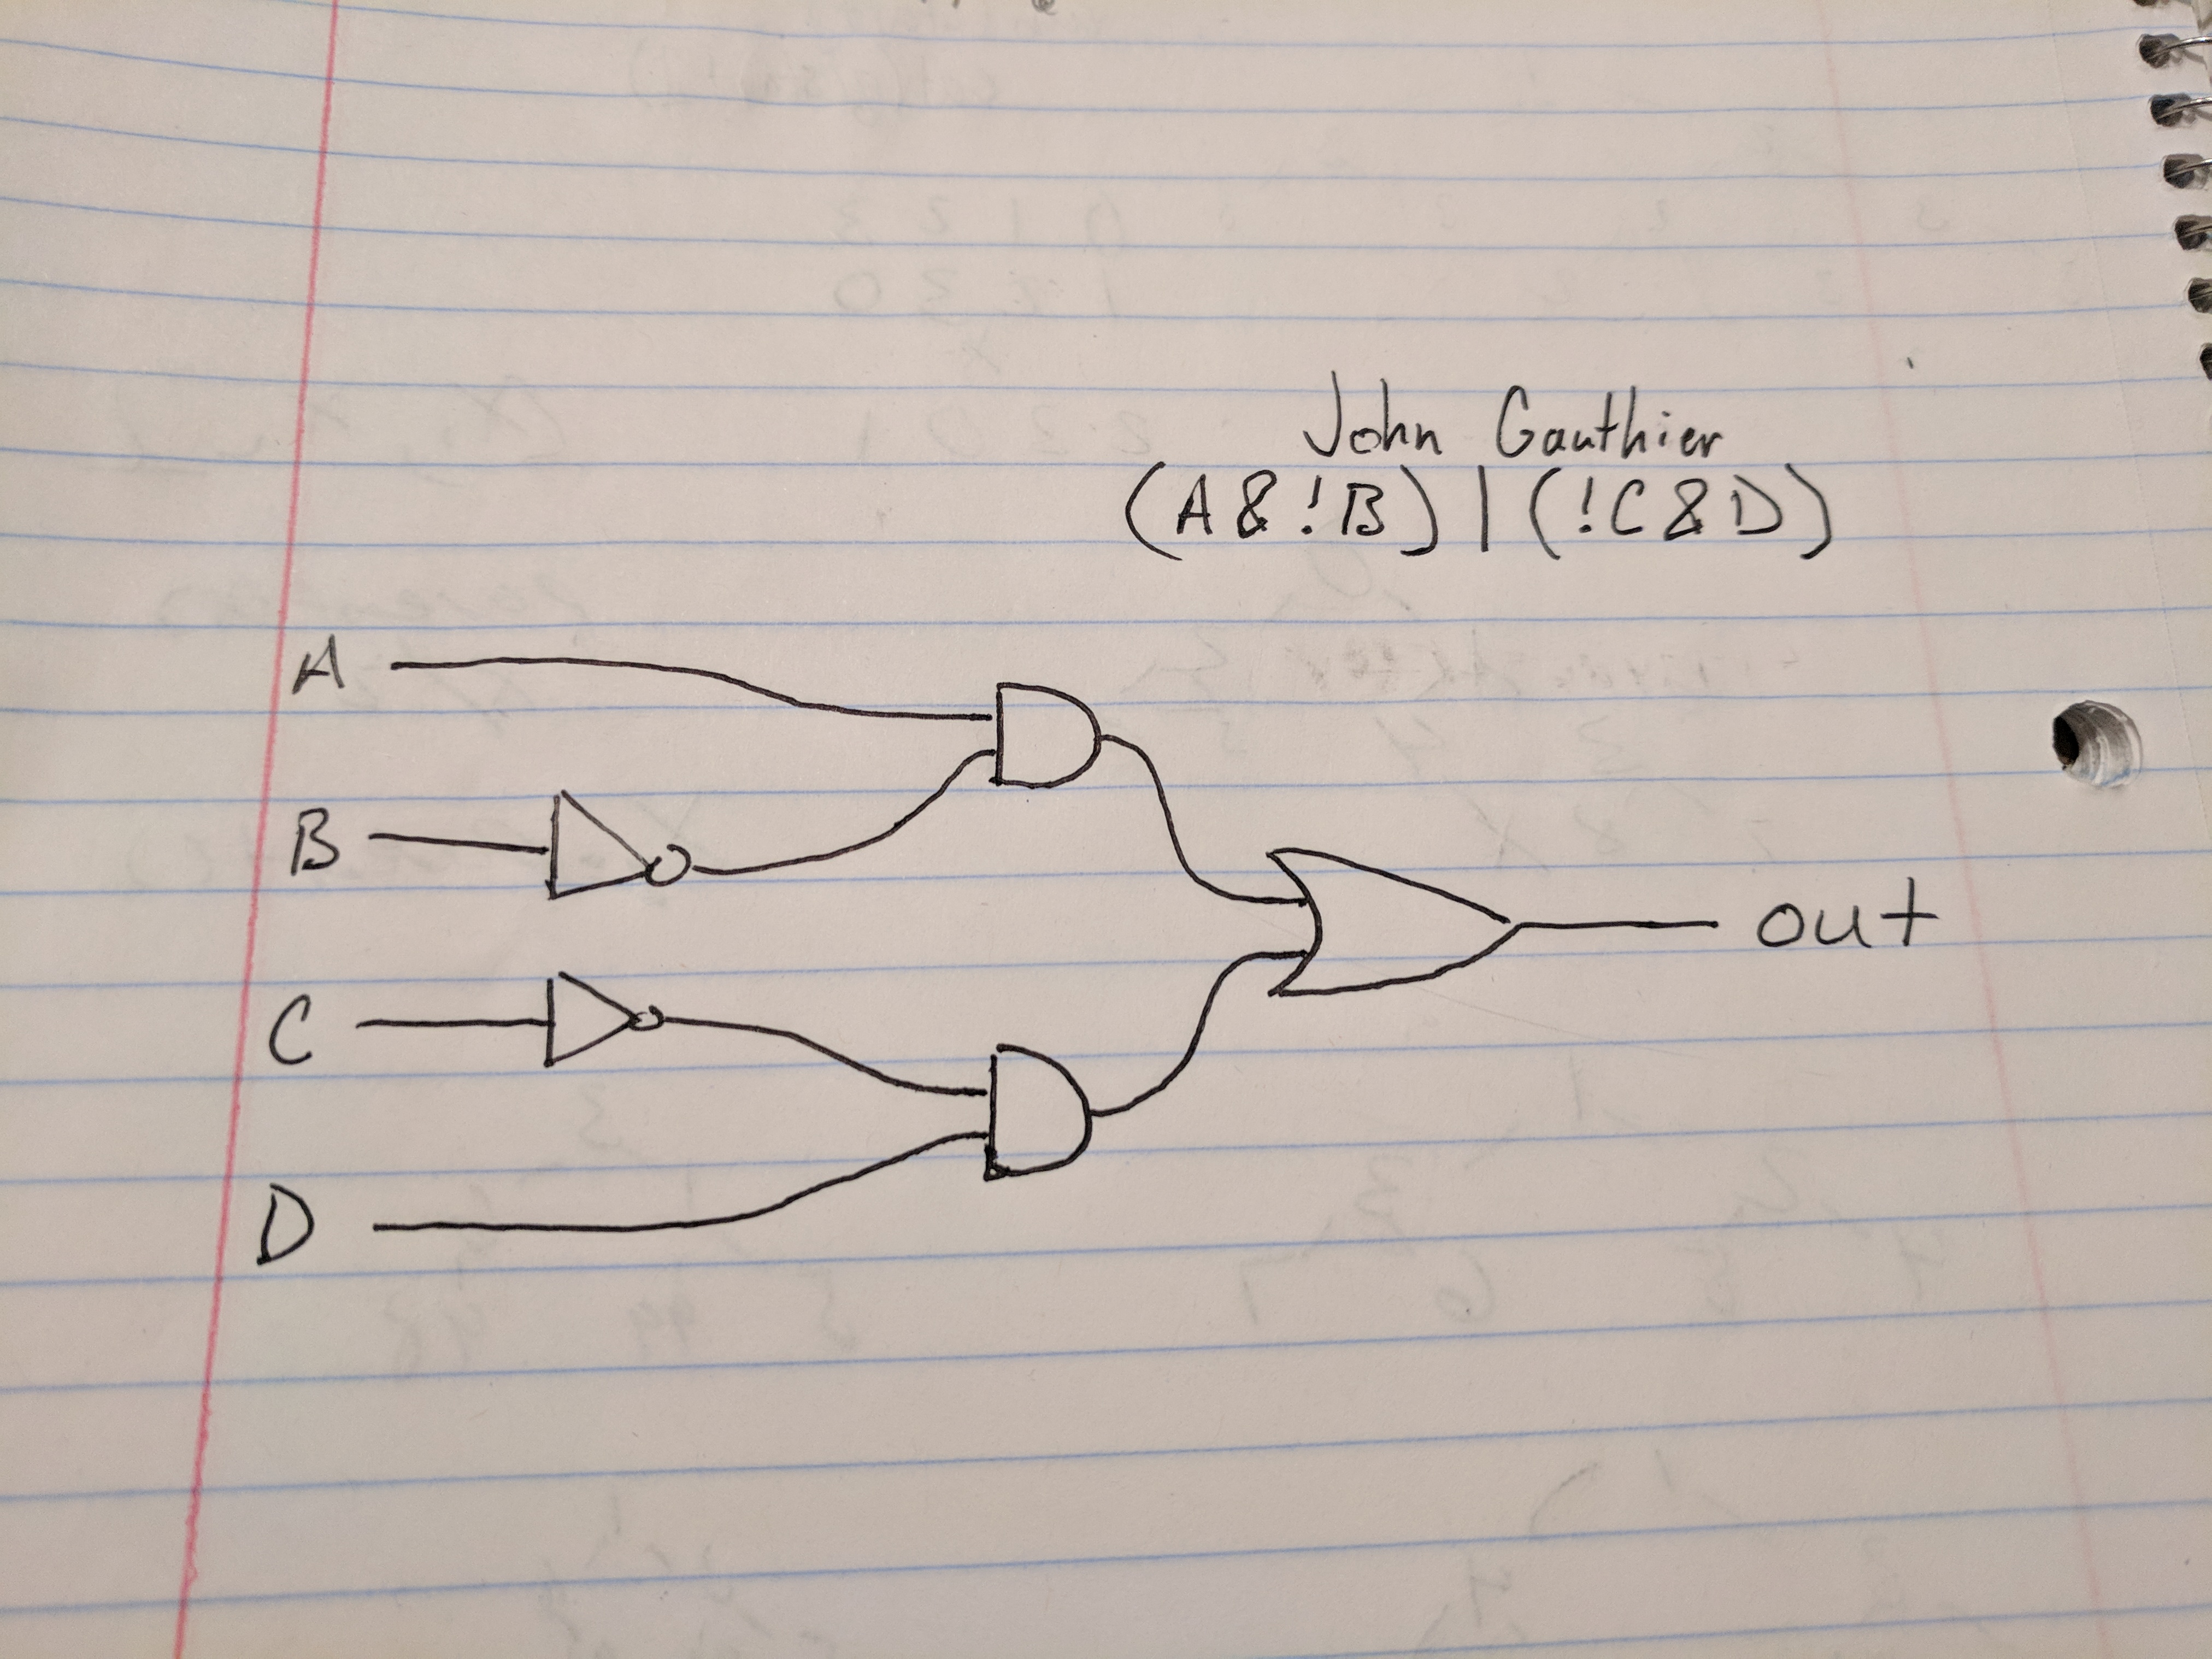 John Gauthier
(A&!B)|(!C&D)
A
B
out
C
D